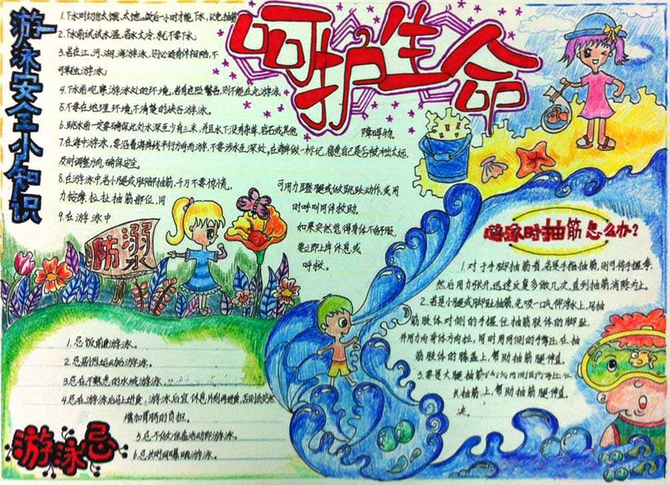 呵护生命
游泳安全小知识
1.下水时切勿太饿、太饱。饭后一小时才能下水,以免抽筋
2.下水前试试水温,若水太冷,就不要下水。
3.若在江、河、湖、海游泳,则必须有伴相陪,不
可单独游泳。
4.下水前观察游泳处的环境,若有危险警告,则不能在此游泳
5.不要在地理环境不清楚的峡谷游泳。
6.跳水前一定要确保此处水深至少有三米,并且水下没有杂草、岩石或其他
障碍物。
7.在海中游泳,要沿着海岸线平行方向而游,
及时调整方向,确保安全。
8.在游泳中若小腿或脚部抽筋,千万不要惊慌,
可用力蹬腿或做跳跃动作,或用
力按摩、拉扯抽筋部位,同
时呼叫同伴救助。
9.在游泳中
如果突然觉得身体不舒服,
要立即上岸休息或
呼救。
防溺
游泳时抽筋怎么办?
1.对于手脚抽筋者,若是手指抽筋,则可将手握拳,
然后用力张开,迅速反复多做几次,直到抽筋消除为止。
2.若是小腿或脚趾抽筋,先吸一口气仰浮水上,用抽
筋肢体对侧的手握住抽筋肢体的脚趾,
并用力向身体方向拉,同时用同侧的手掌压在抽
筋肢体的膝盖上,帮助抽筋腿伸直。
3.要是大腿抽筋
抽筋上,帮助抽筋腿伸直。
游泳忌
1.忌饭前饭后游泳。
2.忌剧烈运动后游泳。
3.忌在不熟悉的水域游泳。
4.忌在游泳后马上进食,游泳后宜休息片刻再进食,否则会突然
增加胃肠的负担。
5.忌不做准备活动即游泳。
6.忌长时间曝晒游泳。